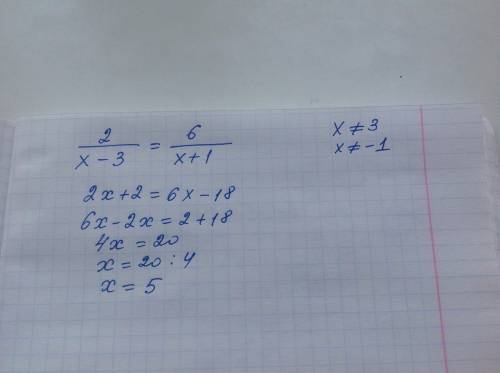 2/(x-3) = 6/(x+1)
x≠3
x≠-1
2x+2=6x-18
6x-2x=2+18
4x=20
x=20:4
x=5